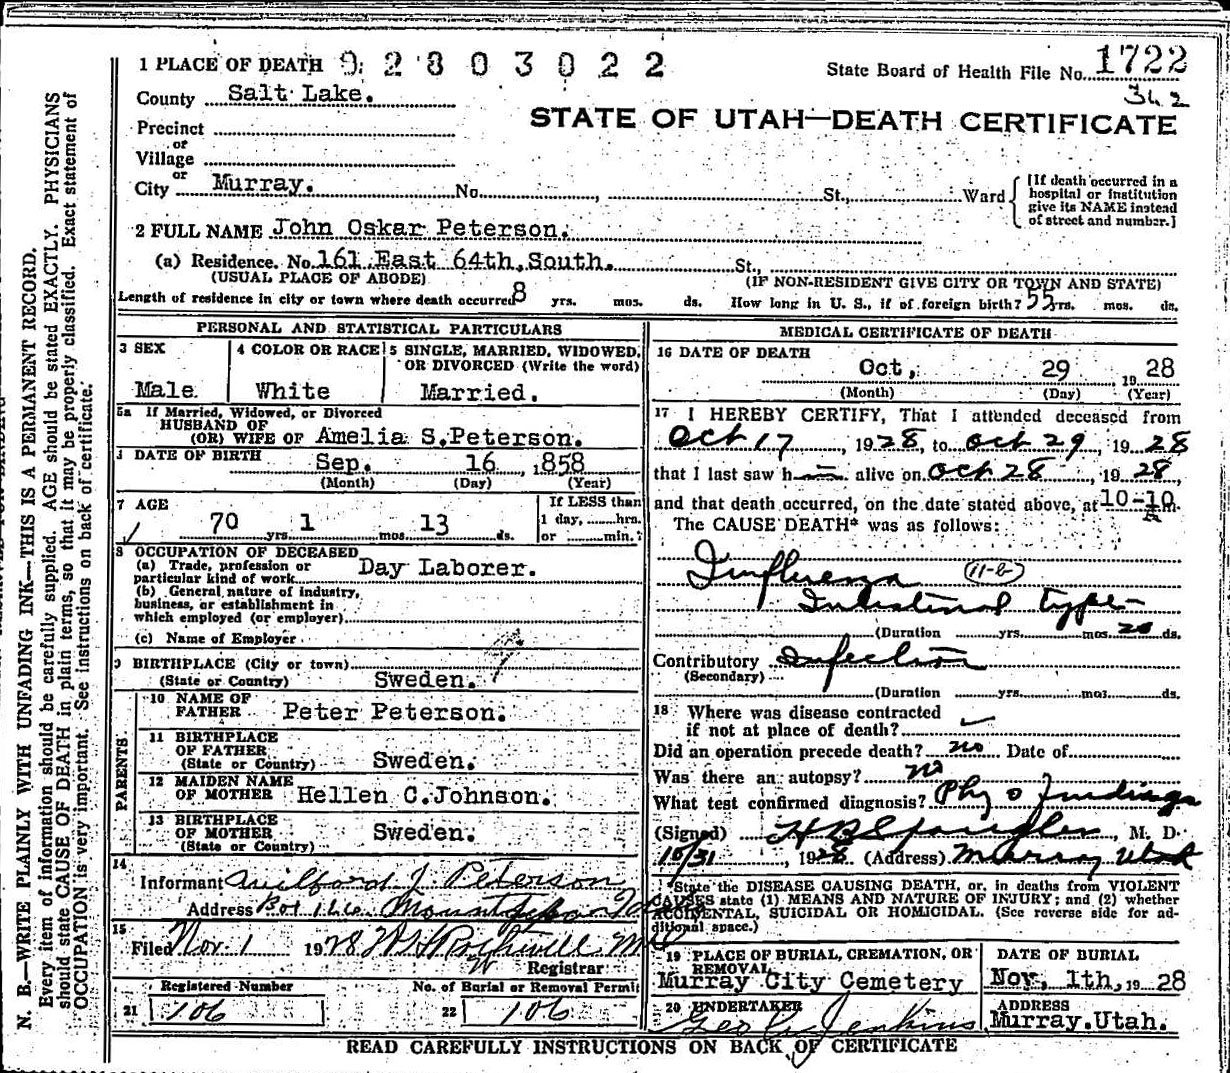 1 PLACE OF DEATH 9 2 8 0 3 0 2 2
State Board of Health File No. 1722
County Salt Lake.
342
STATE OF UTAH—DEATH CERTIFICATE
Precinct
or
Village
or
City Murray. No. , St., Ward
[If death occurred in a
hospital or institution
give its NAME instead
of street and number.]
2 FULL NAME John Oskar Peterson.
(a) Residence. No. 161 East 64th South. St.,
(USUAL PLACE OF ABODE) (IF NON-RESIDENT GIVE CITY OR TOWN AND STATE)
Length of residence in city or town where death occurred 8 yrs. mos. ds. How long in U. S., if of foreign birth? 55 yrs. mos. ds.
PERSONAL AND STATISTICAL PARTICULARS
3 SEX
Male
4 COLOR OR RACE
White
5 SINGLE, MARRIED, WIDOWED,
OR DIVORCED (Write the word)
Married.
5a If Married, Widowed, or Divorced
HUSBAND OF
(OR) WIFE OF Amelia S.Peterson.
DATE OF BIRTH
Sep. 16 , 1858
(Month) (Day) (Year)
7 AGE
70 yrs. 1 mos. 13 ds.
If LESS than
1 day, hrs.
or min.
8 OCCUPATION OF DECEASED
(a) Trade, profession or
particular kind of work Day Laborer.
(b) General nature of industry,
business, or establishment in
which employed (or employer)
(c) Name of Employer
9 BIRTHPLACE (City or town)
(State or Country) Sweden.
PARENTS
10 NAME OF
FATHER Peter Peterson.
11 BIRTHPLACE
OF FATHER
(State or Country) Sweden.
12 MAIDEN NAME
OF MOTHER Hellen C.Johnson.
13 BIRTHPLACE
OF MOTHER
(State or Country) Sweden.
14
Informant Guilford J Peterson
Address Box 166
15
Filed Nov. 1 1928
Registrar
Registered Number
21 106
No. of Burial or Removal Permit
22 106
MEDICAL CERTIFICATE OF DEATH
16 DATE OF DEATH
Oct, 29 , 1928
(Month) (Day) (Year)
17 I HEREBY CERTIFY, That I attended deceased from
Oct 17 , 1928, to Oct 29, 1928
that I last saw h alive on Oct 28 , 1928,
and that death occurred, on the date stated above, at 10-10 A m.
The CAUSE DEATH* was as follows:
Influenza (11-b)
Intestinal type
(Duration yrs. mos. 20 ds.
Contributory Infection
(Secondary)
(Duration yrs. mos. ds.
18 Where was disease contracted
if not at place of death?
Did an operation precede death? no Date of
Was there an autopsy? no
What test confirmed diagnosis? Phy s findings
(Signed) H B Spangler, M. D.
10/31 , 1928 (Address) Murray Utah
*State the DISEASE CAUSING DEATH, or, in deaths from VIOLENT
CAUSES state (1) MEANS AND NATURE OF INJURY; and (2) whether
ACCIDENTAL, SUICIDAL OR HOMICIDAL. (See reverse side for ad-
ditional space.)
19 PLACE OF BURIAL, CREMATION, OR
REMOVAL
Murray City Cemetery
DATE OF BURIAL
Nov, 1th, 1928
20 UNDERTAKER
Geo Jenkins
ADDRESS
Murray.Utah.
READ CAREFULLY INSTRUCTIONS ON BACK OF CERTIFICATE
N. B.—WRITE PLAINLY WITH UNFADING INK—THIS IS A PERMANENT RECORD.
Every item of information should be carefully supplied. AGE should be stated EXACTLY. PHYSICIANS
should state CAUSE OF DEATH in plain terms, so that it may be properly classified. Exact statement of
OCCUPATION is very important. See instructions on back of certificate.